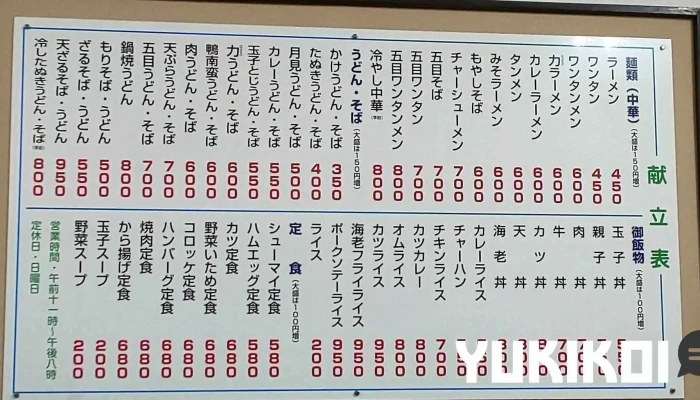 献立表
麺類(中華)(大盛は150円増)
ラーメン 450
ワンタン 450
ワンタンメン 600
力ラーメン 600
カレーラーメン 600
タンメン 600
みそラーメン 600
もやしそば 600
チャーシューメン 700
五目そば 700
五目ワンタン 700
五目ワンタンメン 800
冷やし中華 800
うどん・そば(大盛は150円増)
かけうどん・そば 350
たぬきうどん・そば 400
月見うどん・そば 500
カレーうどん・そば 550
玉子とじうどん・そば 550
力うどん・そば 600
鴨南蛮うどん・そば 600
肉うどん・そば 600
天ぷらうどん・そば 700
五目うどん・そば 700
鍋焼うどん 800
もりそば・うどん 500
ざるそば・うどん 550
天ざるそば・うどん 950
冷したぬきうどん・そば 800
御飯物(大盛は100円増)
玉子丼
親子丼
肉丼
牛丼
カツ丼
天丼
海老丼
カレーライス
チャーハン
チキンライス 700
カツカレー 800
オムライス 800
カツライス 950
海老フライライス 950
ポークソテーライス 950
ライス 200
定食(大盛は100円増)
シューマイ定食 580
ハムエッグ定食 580
カツ定食 680
野菜いため定食 680
コロッケ定食 680
ハンバーグ定食 680
焼肉定食 680
から揚げ定食 680
玉子スープ 200
野菜スープ 200
営業時間・午前十一時〜午後八時
定休日・日曜日
YUKIKOI